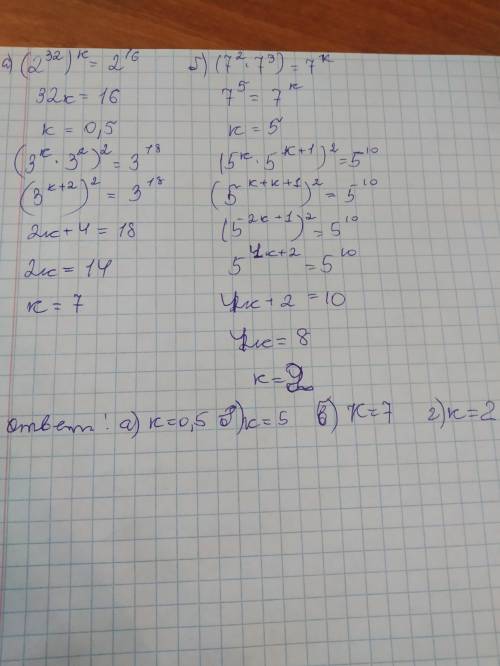 а) (2^32)^к = 2^16
32к = 16
к = 0,5
(3^к · 3^2)^2 = 3^18
(3^к+2)^2 = 3^18
2к + 4 = 18
2к = 14
к = 7
б) (7^2 · 7^3) = 7^к
7^5 = 7^к
к = 5
(5^к · 5^к+1)^2 = 5^10
(5^к+к+1)^2 = 5^10
(5^2к+1)^2 = 5^10
5^4к+2 = 5^10
4к + 2 = 10
4к = 8
к = 2
ответ: а) к=0,5 б) к=5 в) К=7 г) к=2